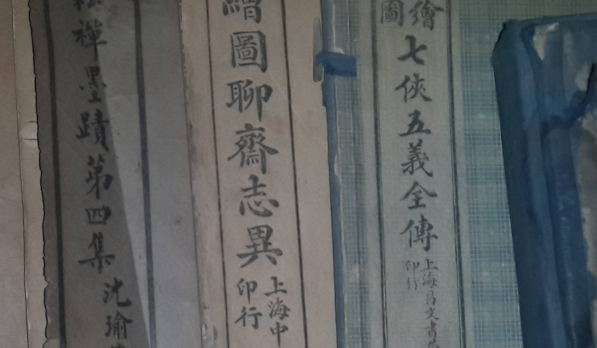 繪圖
七俠五義全傳
上海昌文書局
印行
繪圖聊齋志異
上海中
印行
松禪墨蹟第四集
沈瑜